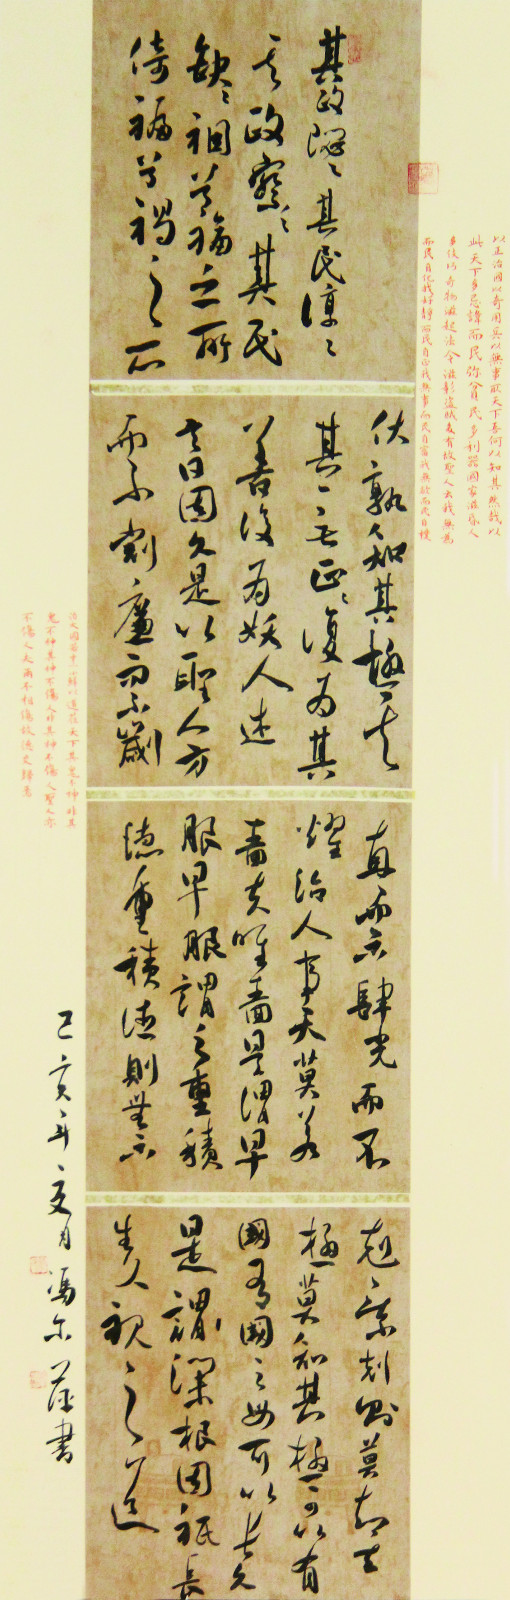 以正治國以奇用兵以無事取天下吾何以知其然哉以
此天下多忌諱而民弥貧民多利器國家滋昏人
多伎巧奇物滋起法令滋彰盜賊多有故聖人云我無為
而民自化我好静而民自正我無事而民自富我無欲而民自樸
其政悶〻其民淳〻
其政察〻其民
缺〻禍兮福之所
倚福兮禍之所
伏孰知其極其
其无正〻復为其
善復为妖人迷
其日固久是以聖人方
而不割廉而不劌
直而不肆光而不
耀治人事天莫若
嗇夫唯嗇是謂早
服早服謂之重積
德重積德則無不
克〻無不克則莫知其
極莫知其極可以有
國有國之母可以長久
是謂深根固柢長
生久視之道
治大國若烹小鮮以道莅天下其鬼不神非其
鬼不神其神不傷人非其神不傷人聖人亦
不傷人夫兩不相傷故德交歸焉
己亥年夏月冯尔書